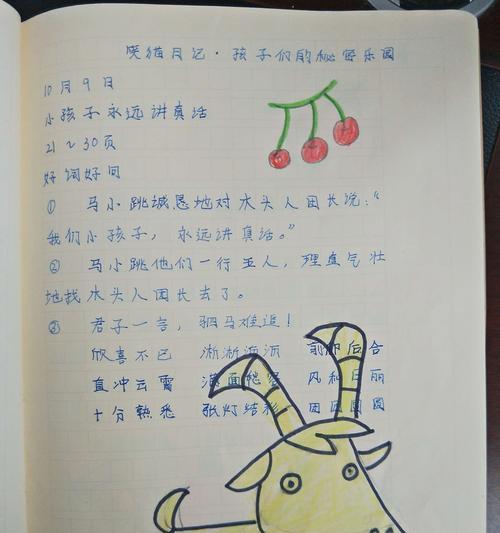 笑猫日记·孩子们的秘密乐园
10月9日
小孩子永远讲真话
21~30页
好词好句
① 马小跳诚恳地对木头人团长说:“
我们小孩子,永远讲真话。”
② 马小跳他们一行五人,理直气壮
地找木头人团长去了。
③ 君子一言,驷马难追!
欣喜不已 淅淅沥沥 前仰后合
直冲云霄 满面 风和日丽
十分熟悉 张灯结彩 团团圆圆